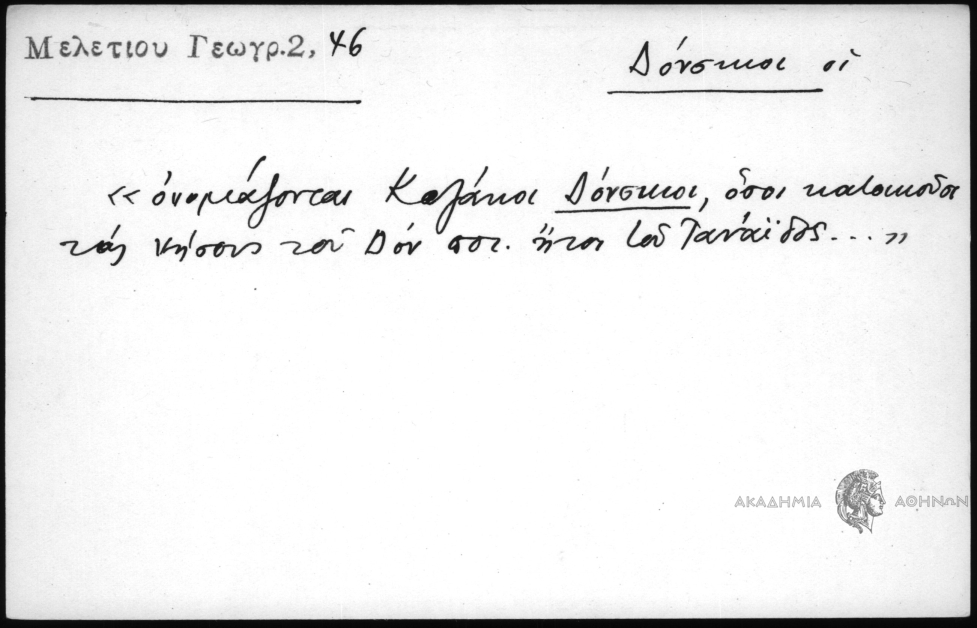 Μελετιου Γεωγρ.2, 46
Δόνσκιοι οἱ
«ὀνομάζονται Καζάκοι Δόνσκιοι, ὅσοι κατοικοῦσι
τὰς νήσους τοῦ Δὸν ποτ. ἤτοι τοῦ Τανάϊδος...»
ΑΚΑΔΗΜΙΑ ΑΘΗΝΩΝ